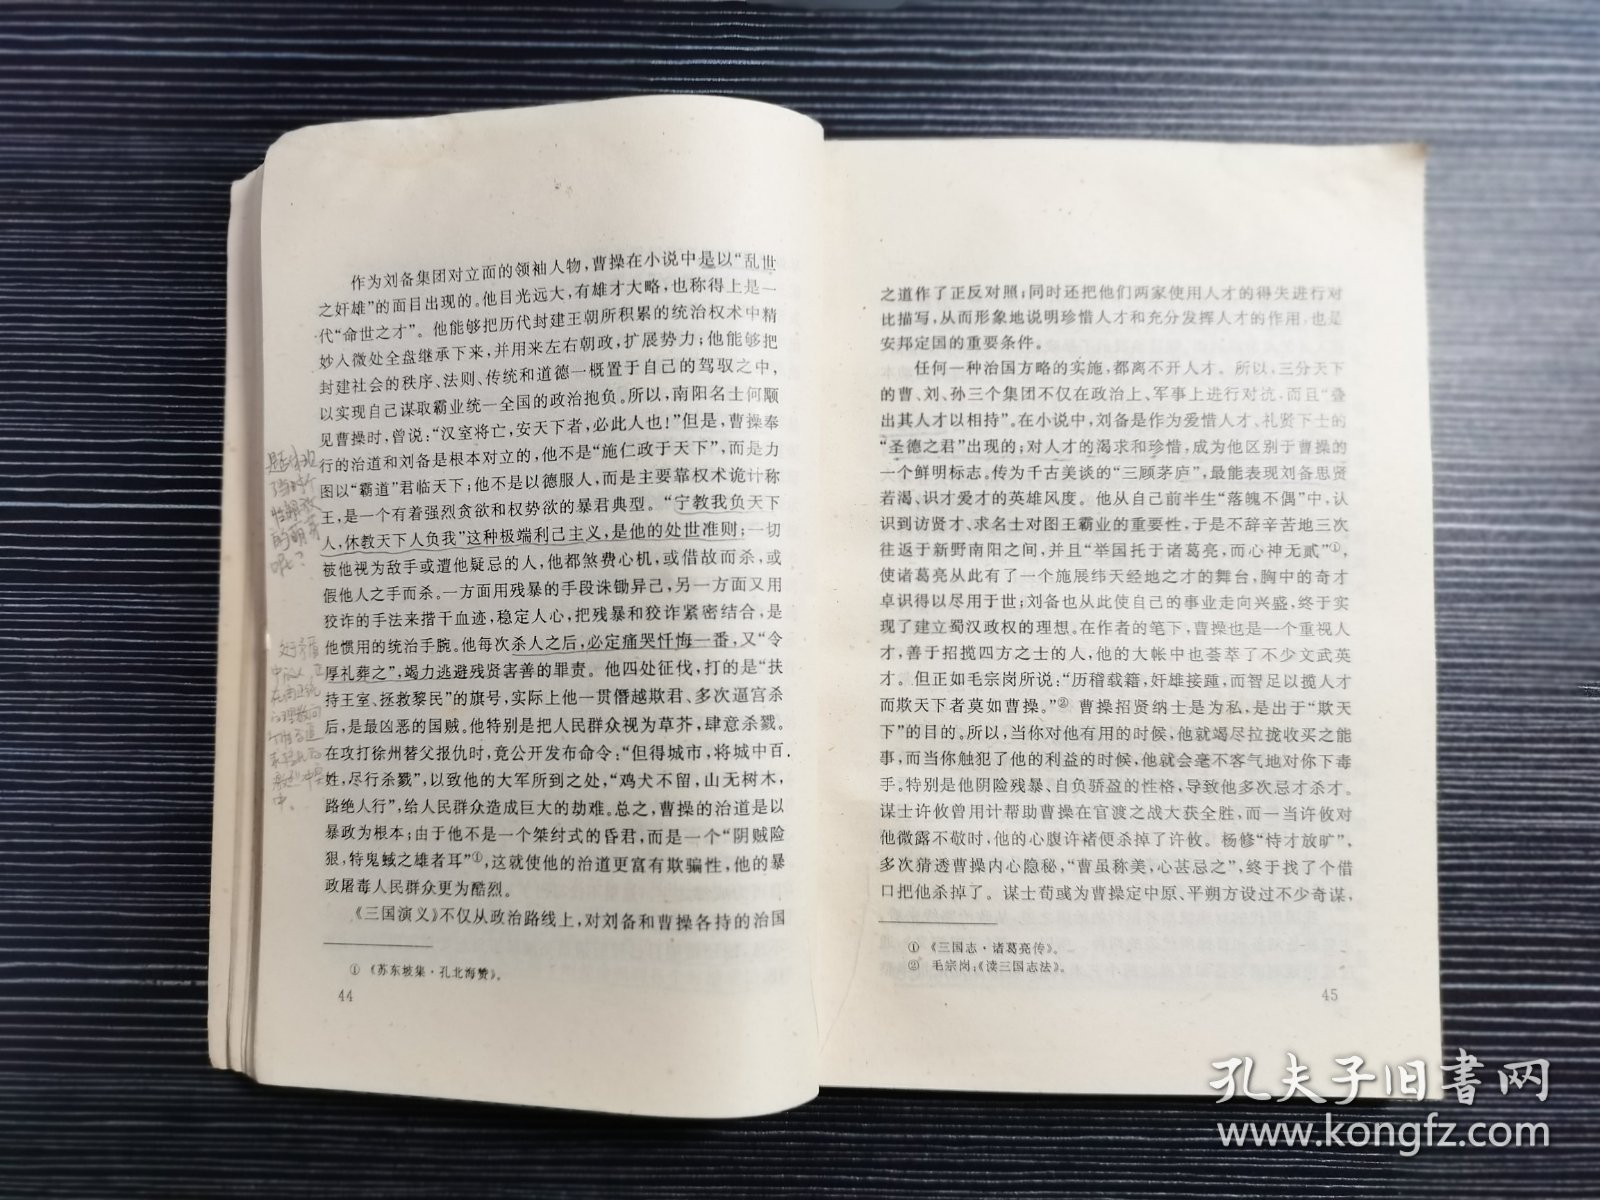 作为刘备集团对立面的领袖人物，曹操在小说中是以“乱世
之奸雄”的面目出现的。他目光远大，有雄才大略，也称得上是一
代“命世之才”。他能够把历代封建王朝所积累的统治权术中精
妙入微处全盘继承下来，并用来左右朝政，扩展势力；他能够把
封建社会的秩序、法则、传统和道德一概置于自己的驾驭之中，
以实现自己谋取霸业统一全国的政治抱负。所以，南阳名士何颙
见曹操时，曾说：“汉室将亡，安天下者，必此人也！”但是，曹操奉
行的治道和刘备是根本对立的，他不是“施仁政于天下”，而是力
图以“霸道”君临天下；他不是以德服人，而是主要靠权术诡计称
王，是一个有着强烈贪欲和权势欲的暴君典型。“宁教我负天下
人，休教天下人负我”这种极端利己主义，是他的处世准则；一切
被他视为敌手或遭他疑忌的人，他都煞费心机，或借故而杀，或
假他人之手而杀。一方面用残暴的手段诛锄异己，另一方面又用
狡诈的手法来揩干血迹，稳定人心，把残暴和狡诈紧密结合，是
他惯用的统治手腕。他每次杀人之后，必定痛哭忏悔一番，又“令
厚礼葬之”，竭力逃避残贤害善的罪责。他四处征伐，打的是“扶
持王室、拯救黎民”的旗号，实际上他一贯僭越欺君、多次逼宫杀
后，是最凶恶的国贼。他特别是把人民群众视为草芥，肆意杀戮。
在攻打徐州替父报仇时，竟公开发布命令：“但得城市，将城中百
姓，尽行杀戮”，以致他的大军所到之处，“鸡犬不留，山无树木，
路绝人行”，给人民群众造成巨大的劫难。总之，曹操的治道是以
暴政为根本；由于他不是一个桀纣式的昏君，而是一个“阴贼险
狠，特鬼蜮之雄者耳”①，这就使他的治道更富有欺骗性，他的暴
政屠毒人民群众更为酷烈。
《三国演义》不仅从政治路线上，对刘备和曹操各持的治国
① 《苏东坡集·孔北海赞》。
44
之道作了正反对照；同时还把他们两家使用人才的得失进行对
比描写，从而形象地说明珍惜人才和充分发挥人才的作用，也是
安邦定国的重要条件。
任何一种治国方略的实施，都离不开人才。所以，三分天下
的曹、刘、孙三个集团不仅在政治上、军事上进行对抗，而且“叠
出其人才以相持”。在小说中，刘备是作为爱惜人才、礼贤下士的
“圣德之君”出现的；对人才的渴求和珍惜，成为他区别于曹操的
一个鲜明标志。传为千古美谈的“三顾茅庐”，最能表现刘备思贤
若渴、识才爱才的英雄风度。他从自己前半生“落魄不偶”中，认
识到访贤才、求名士对图王霸业的重要性，于是不辞辛苦地三次
往返于新野南阳之间，并且“举国托于诸葛亮，而心神无贰”①，
使诸葛亮从此有了一个施展纬天经地之才的舞台，胸中的奇才
卓识得以尽用于世；刘备也从此使自己的事业走向兴盛，终于实
现了建立蜀汉政权的理想。在作者的笔下，曹操也是一个重视人
才，善于招揽四方之士的人，他的大帐中也荟萃了不少文武英
才。但正如毛宗岗所说：“历稽载籍，奸雄接踵，而智足以揽人才
而欺天下者莫如曹操。”② 曹操招贤纳士是为私，是出于“欺天
下”的目的。所以，当你对他有用的时候，他就竭尽拉拢收买之能
事，而当你触犯了他的利益的时候，他就会毫不客气地对你下毒
手。特别是他阴险残暴、自负骄盈的性格，导致他多次忌才杀才。
谋士许攸曾用计帮助曹操在官渡之战大获全胜，而一当许攸对
他微露不敬时，他的心腹许褚便杀掉了许攸。杨修“恃才放旷”，
多次猜透曹操内心隐秘，“曹虽称美，心甚忌之”，终于找了个借
口把他杀掉了。谋士荀彧为曹操定中原、平朔方设过不少奇谋，
① 《三国志·诸葛亮传》。
② 毛宗岗：《读三国志法》。
45
孔夫子旧书网
www.kongfz.com